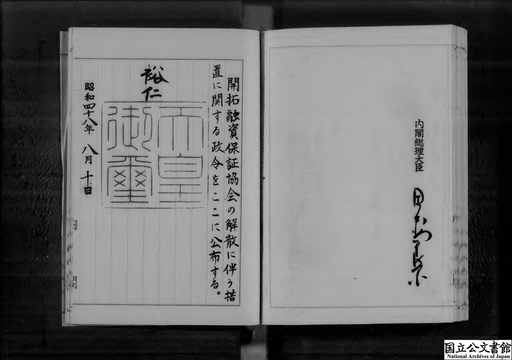 内閣総理大臣
田中角榮
開拓融資保証協会の解散に伴う措
置に関する政令をここに公布する。
裕仁
天皇
御璽
昭和四十八年八月十日
内閣
国立公文書館
National Archives of Japan